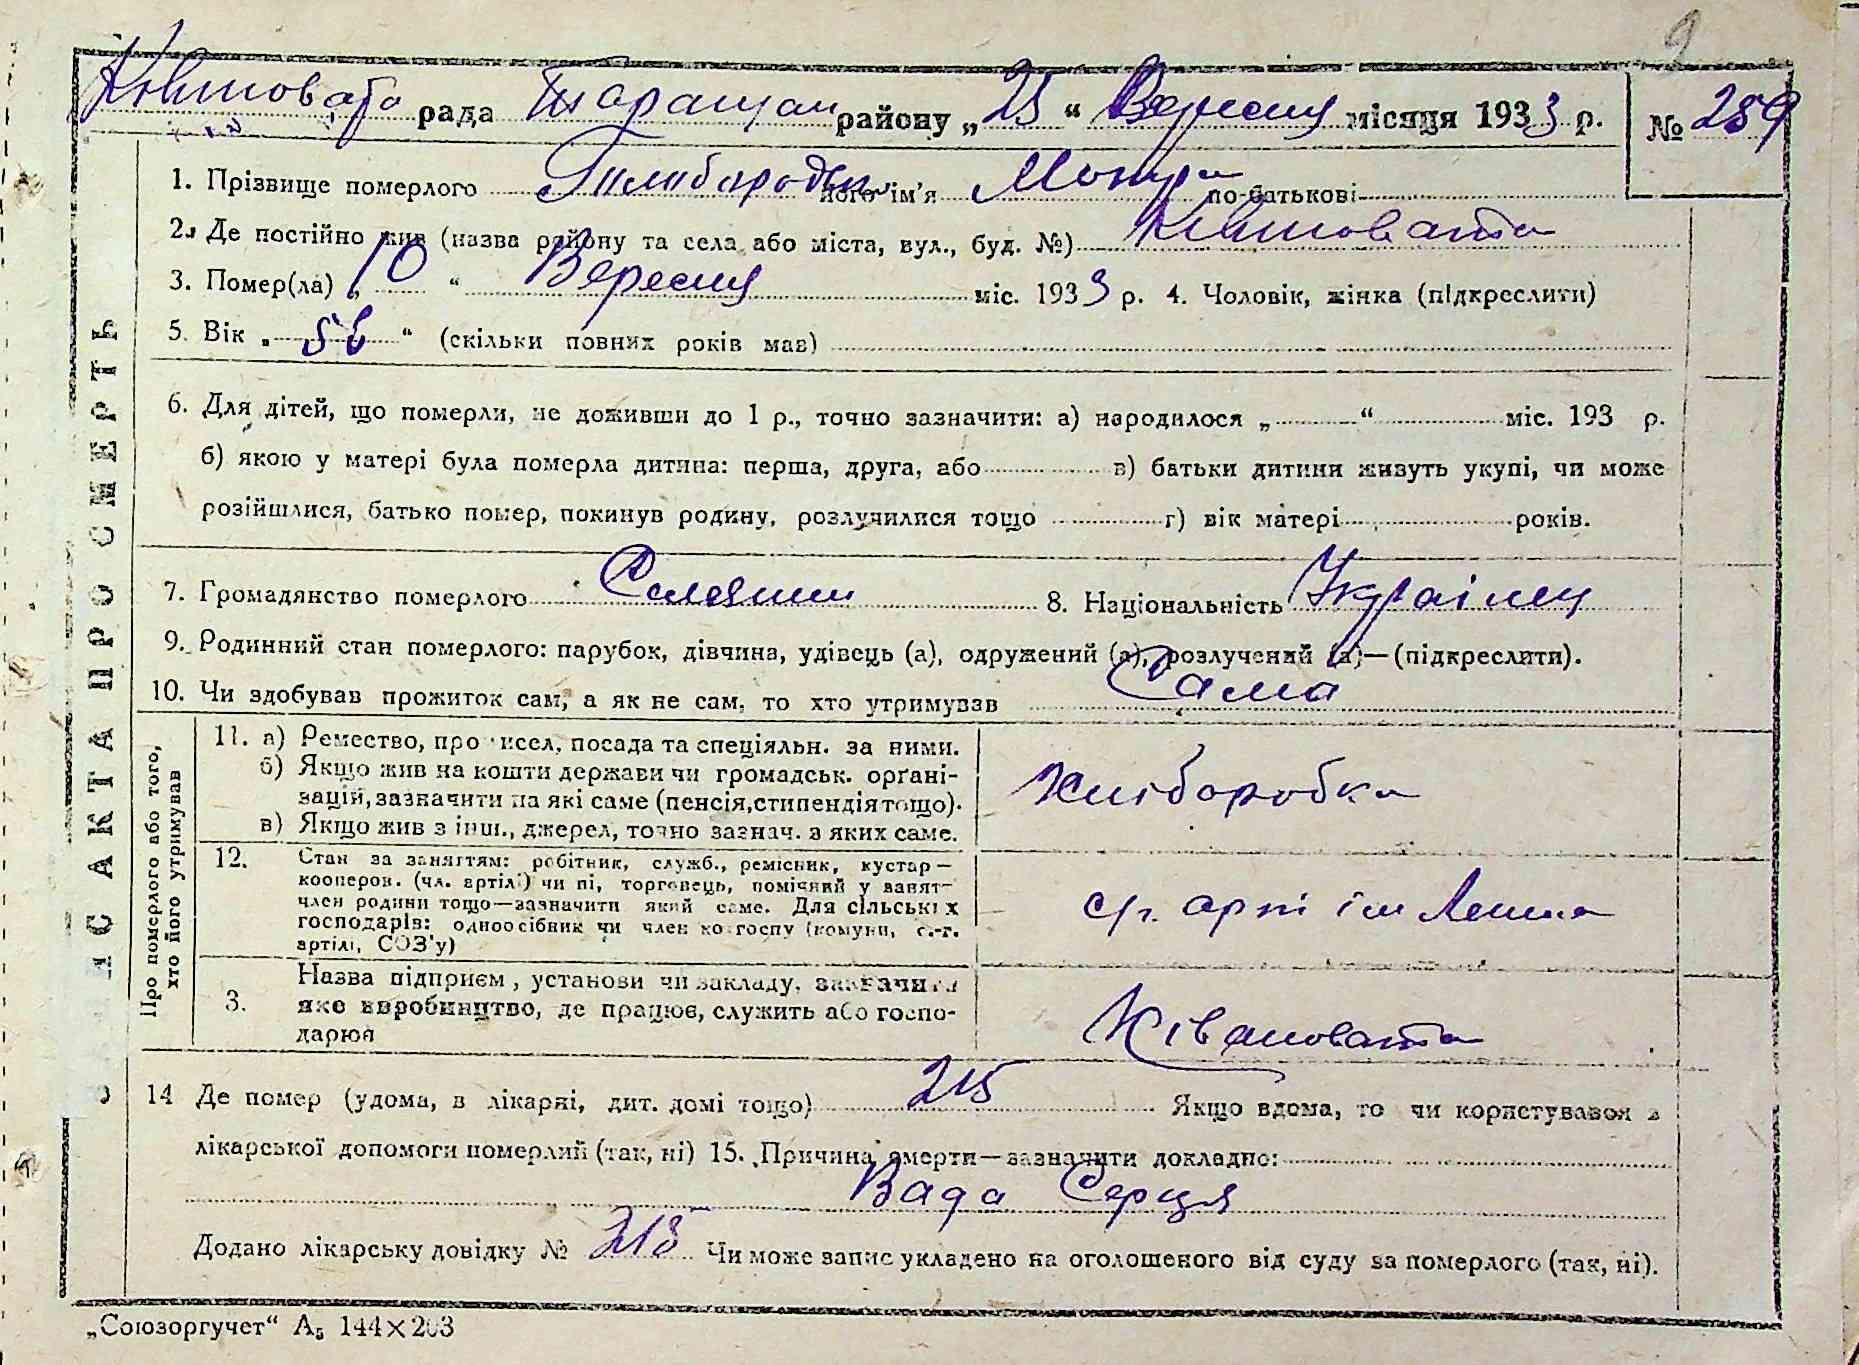 рада Таращан району „25“ Вересня місяця 1933 р. № 259
1. Прізвище померлого його ім'я Мотря по-батькові
2. Де постійно жив (назва району та села або міста, вул., буд. №) Ківшовата
3. Помер(ла) „10“ Вересня міс. 1933 р. 4. Чоловік, жінка (підкреслити)
5. Вік „56“ (скільки повних років мав)
6. Для дітей, що померли, не доживши до 1 р., точно зазначити: а) народилося „ “ міс. 193 р.
б) якою у матері була померла дитина: перша, друга, або в) батьки дитини живуть укупі, чи може
розійшлися, батько помер, покинув родину, розлучилися тощо г) вік матері років.
7. Громадянство померлого 8. Національність Українец
9. Родинний стан померлого: парубок, дівчина, удівець (а), одружений (а), розлучений (а)—(підкреслити).
10. Чи здобував прожиток сам, а як не сам, то хто утримував Сама
Про померлого або того,
хто його утримував
11. а) Ремество, професл, посада та спеціяльн. за ними.
б) Якщо жив на кошти держави чи громадськ. орґані-
зацій, зазначити на які саме (пенсія, стипендія тощо).
в) Якщо жив з інш., джерел, точно зазнач. з яких саме.
Хліборобка
12. Стан за заняттям: робітник, служб., ремісник, кустар—
кооперов. (чл. артілі) чи ні, торговець, помічний у занят-
член родини тощо—зазначити який саме. Для сільських
господарів: одноосібник чи член колгоспу (комуни, с.-г.
артілі, СОЗ'у)
арті ім Леніна
3. Назва підприєм, установи чи закладу, зазначити
яке виробництво, де працює, служить або госпо-
дарює
Ківшовата
14 Де помер (удома, в лікарні, дит. домі тощо) Якщо вдома, то чи користувався з
лікарської допомоги померлий (так, ні) 15. Причина смерти—зазначити докладно:
Вада Серця
Додано лікарську довідку № 215 Чи може запис укладено на оголошеного від суду за померлого (так, ні).
АКТ ПРО СМЕРТЬ
„Союзоргучет“ А₅ 144×203